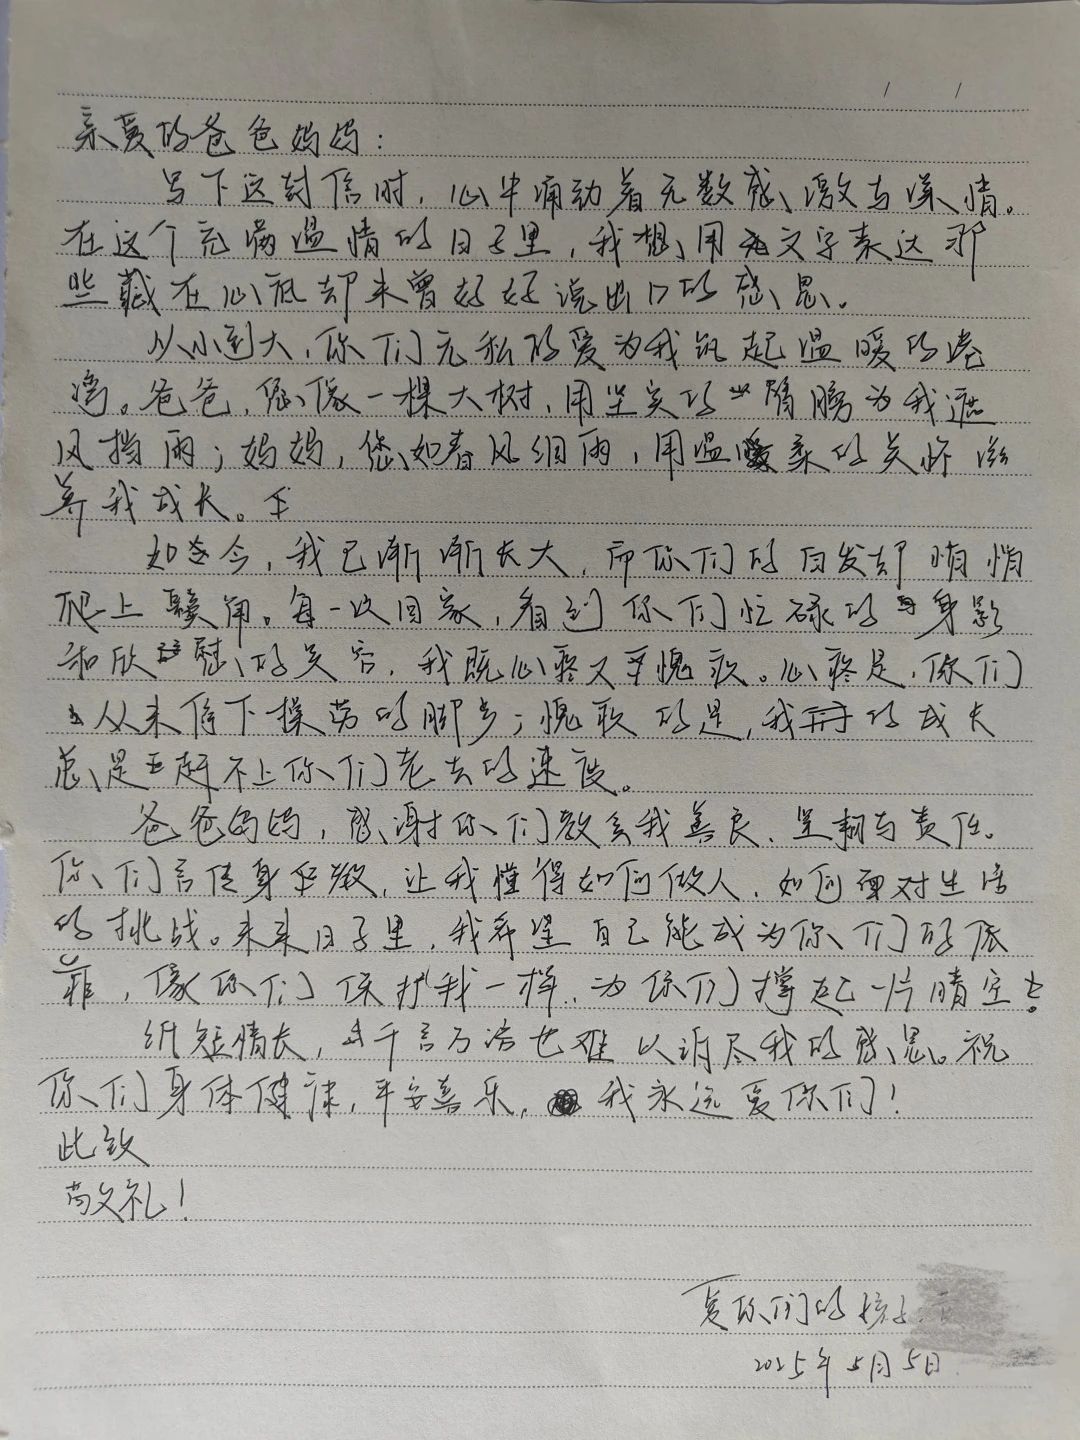 亲爱的爸爸妈妈：
写下这封信时，心中涌动着无数感激与深情。
在这个充满温情的日子里，我想用文字表达那
些藏在心底却未曾好好说出口的感恩。
从小到大，你们无私的爱为我筑起温暖的港
湾。爸爸，您像一棵大树，用坚实的臂膀为我遮
风挡雨；妈妈，您如春风细雨，用温柔的关怀滋
养我成长。
如今，我已渐渐长大，而你们的白发却悄悄
爬上鬓角。每一次回家，看到你们忙碌的身影
和欣慰的笑容，我既心疼又愧疚。心疼是，你们
从未停下操劳的脚步；愧疚的是，我的成长
总是赶不上你们老去的速度。
爸爸妈妈，感谢你们教会我善良、坚韧与责任。
你们言传身教，让我懂得如何做人，如何面对生活
的挑战。未来日子里，我希望自己能成为你们的依
靠，像你们保护我一样，为你们撑起一片晴空！
纸短情长，千言万语也难以诉尽我的感恩。祝
你们身体健康，平安喜乐，我永远爱你们！
此致
敬礼！
爱你们的孩子
2025年5月5日